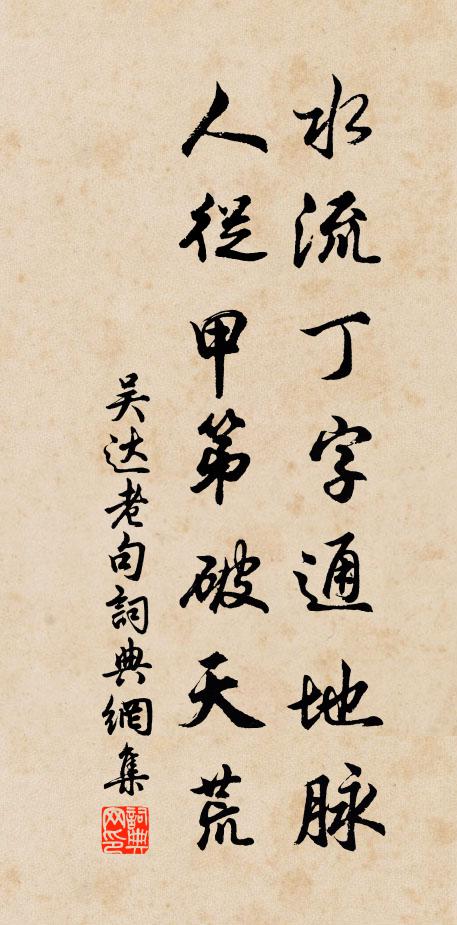 水流丁字通地脉
人從甲第破天荒
吴达老句詞典網集
詞典网印